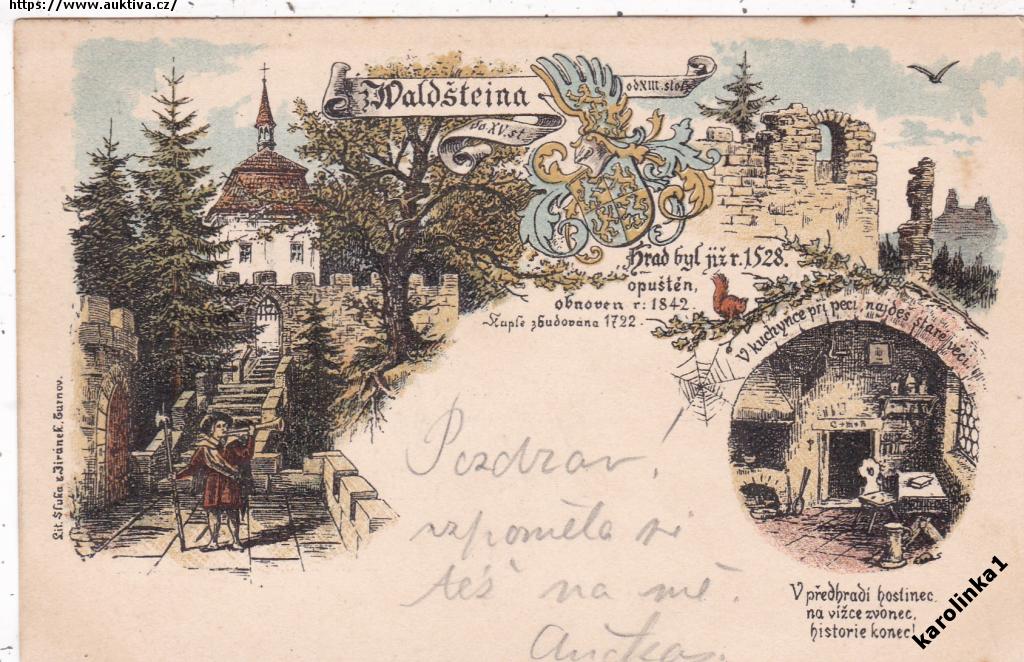 https://www.auktiva.cz/
z Waldšteina
od XIII. stol.
do XV. st.
Hrad byl již r. 1528.
opuštěn,
obnoven r. 1842.
Kaple zbudována 1722.
V kuchyňce při peci najdeš staré věci
C+m+B
Lit. Sluka & Jiránek, Turnov.
Pozdrav!
vzpoměla si
též na mě.
V předhradí hostinec,
na vížce zvonec,
historie konec!
karolinka1